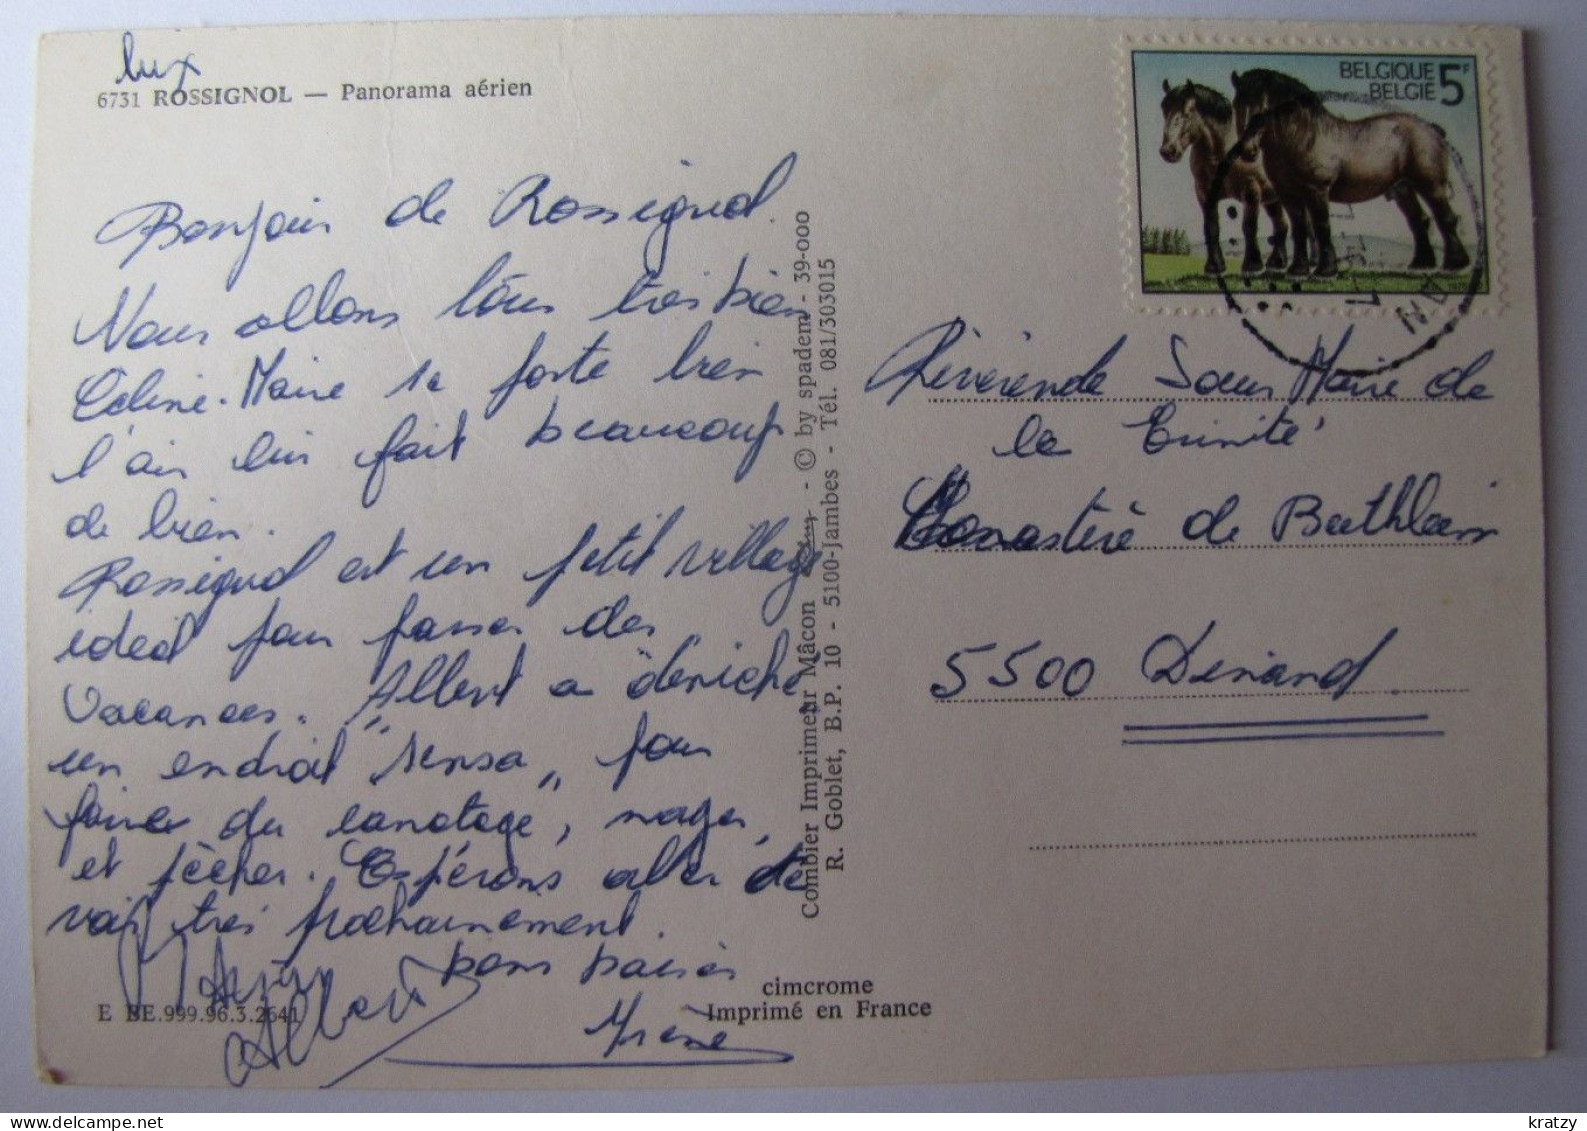 lux
6731 ROSSIGNOL — Panorama aérien
Bonjour de Rossignol.
Nous allons tous très bien
Céline-Marie se porte bien
l'air lui fait beaucoup
de bien.
Rossignol est un petit village
idéal pour passer des
vacances. Albert a déniché
un endroit "sensa" pour
faire du canotage, nager,
et pêcher. Espérons aller te
voir très prochainement.
bons baisers
Albert
Irène
E BE.999.96.3.2641
cimcrome
Imprimé en France
Combier Imprimeur Mâcon - © by spadem - 39-000
R. Goblet, B.P. 10 - 5100-Jambes - Tél. 081/303015
BELGIQUE 5F
BELGIË
Révérende Sœur Marie de
la Trinité
Monastère de Bethléem
5500 Dinand.
kratzy